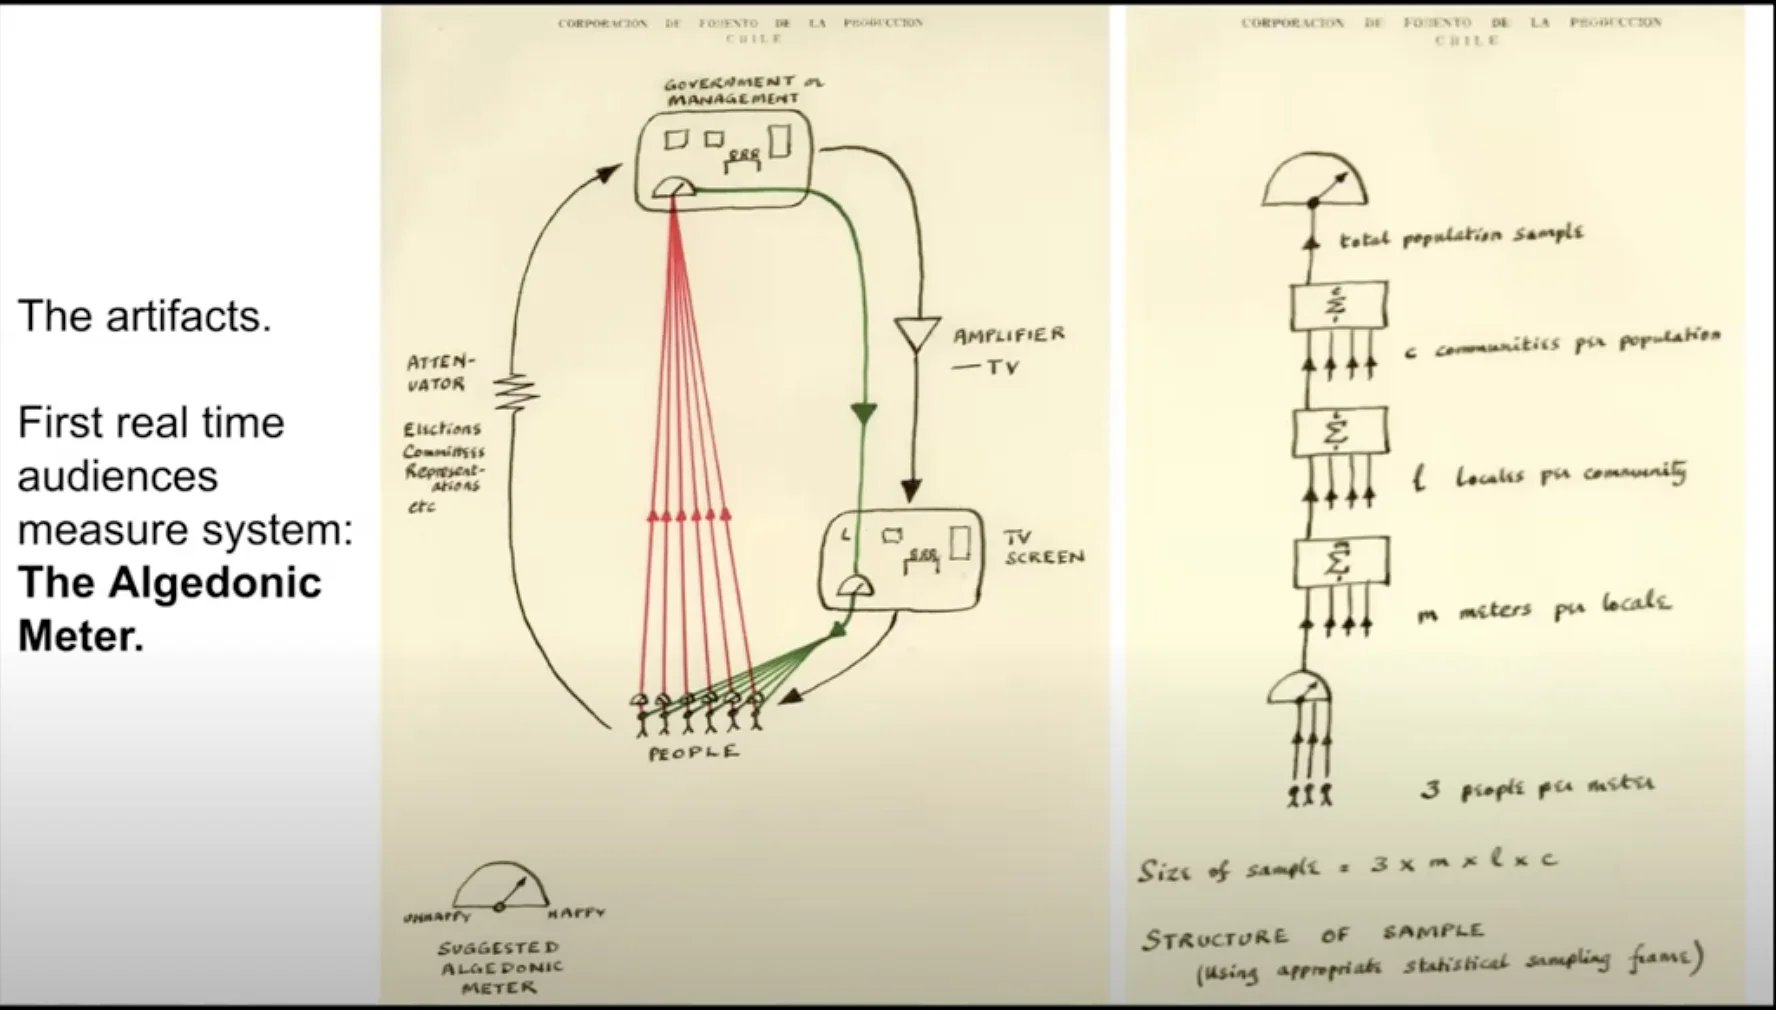 The artifacts.
First real time
audiences
measure system:
The Algedonic
Meter.
CORPORACION DE FOMENTO DE LA PRODUCCION
CHILE
GOVERNMENT or
MANAGEMENT
ATTEN-
UATOR
Elections
Committees
Represent-
ations
etc
AMPLIFIER
— TV
TV
SCREEN
PEOPLE
UNHAPPY HAPPY
SUGGESTED
ALGEDONIC
METER
CORPORACION DE FOMENTO DE LA PRODUCCION
CHILE
total population sample
c
Σ
1
c communities per population
l
Σ
1
l locales per community
m
Σ
1
m meters per locale
3 people per meter
Size of sample = 3 x m x l x c
STRUCTURE OF SAMPLE
(Using appropriate statistical sampling frame)